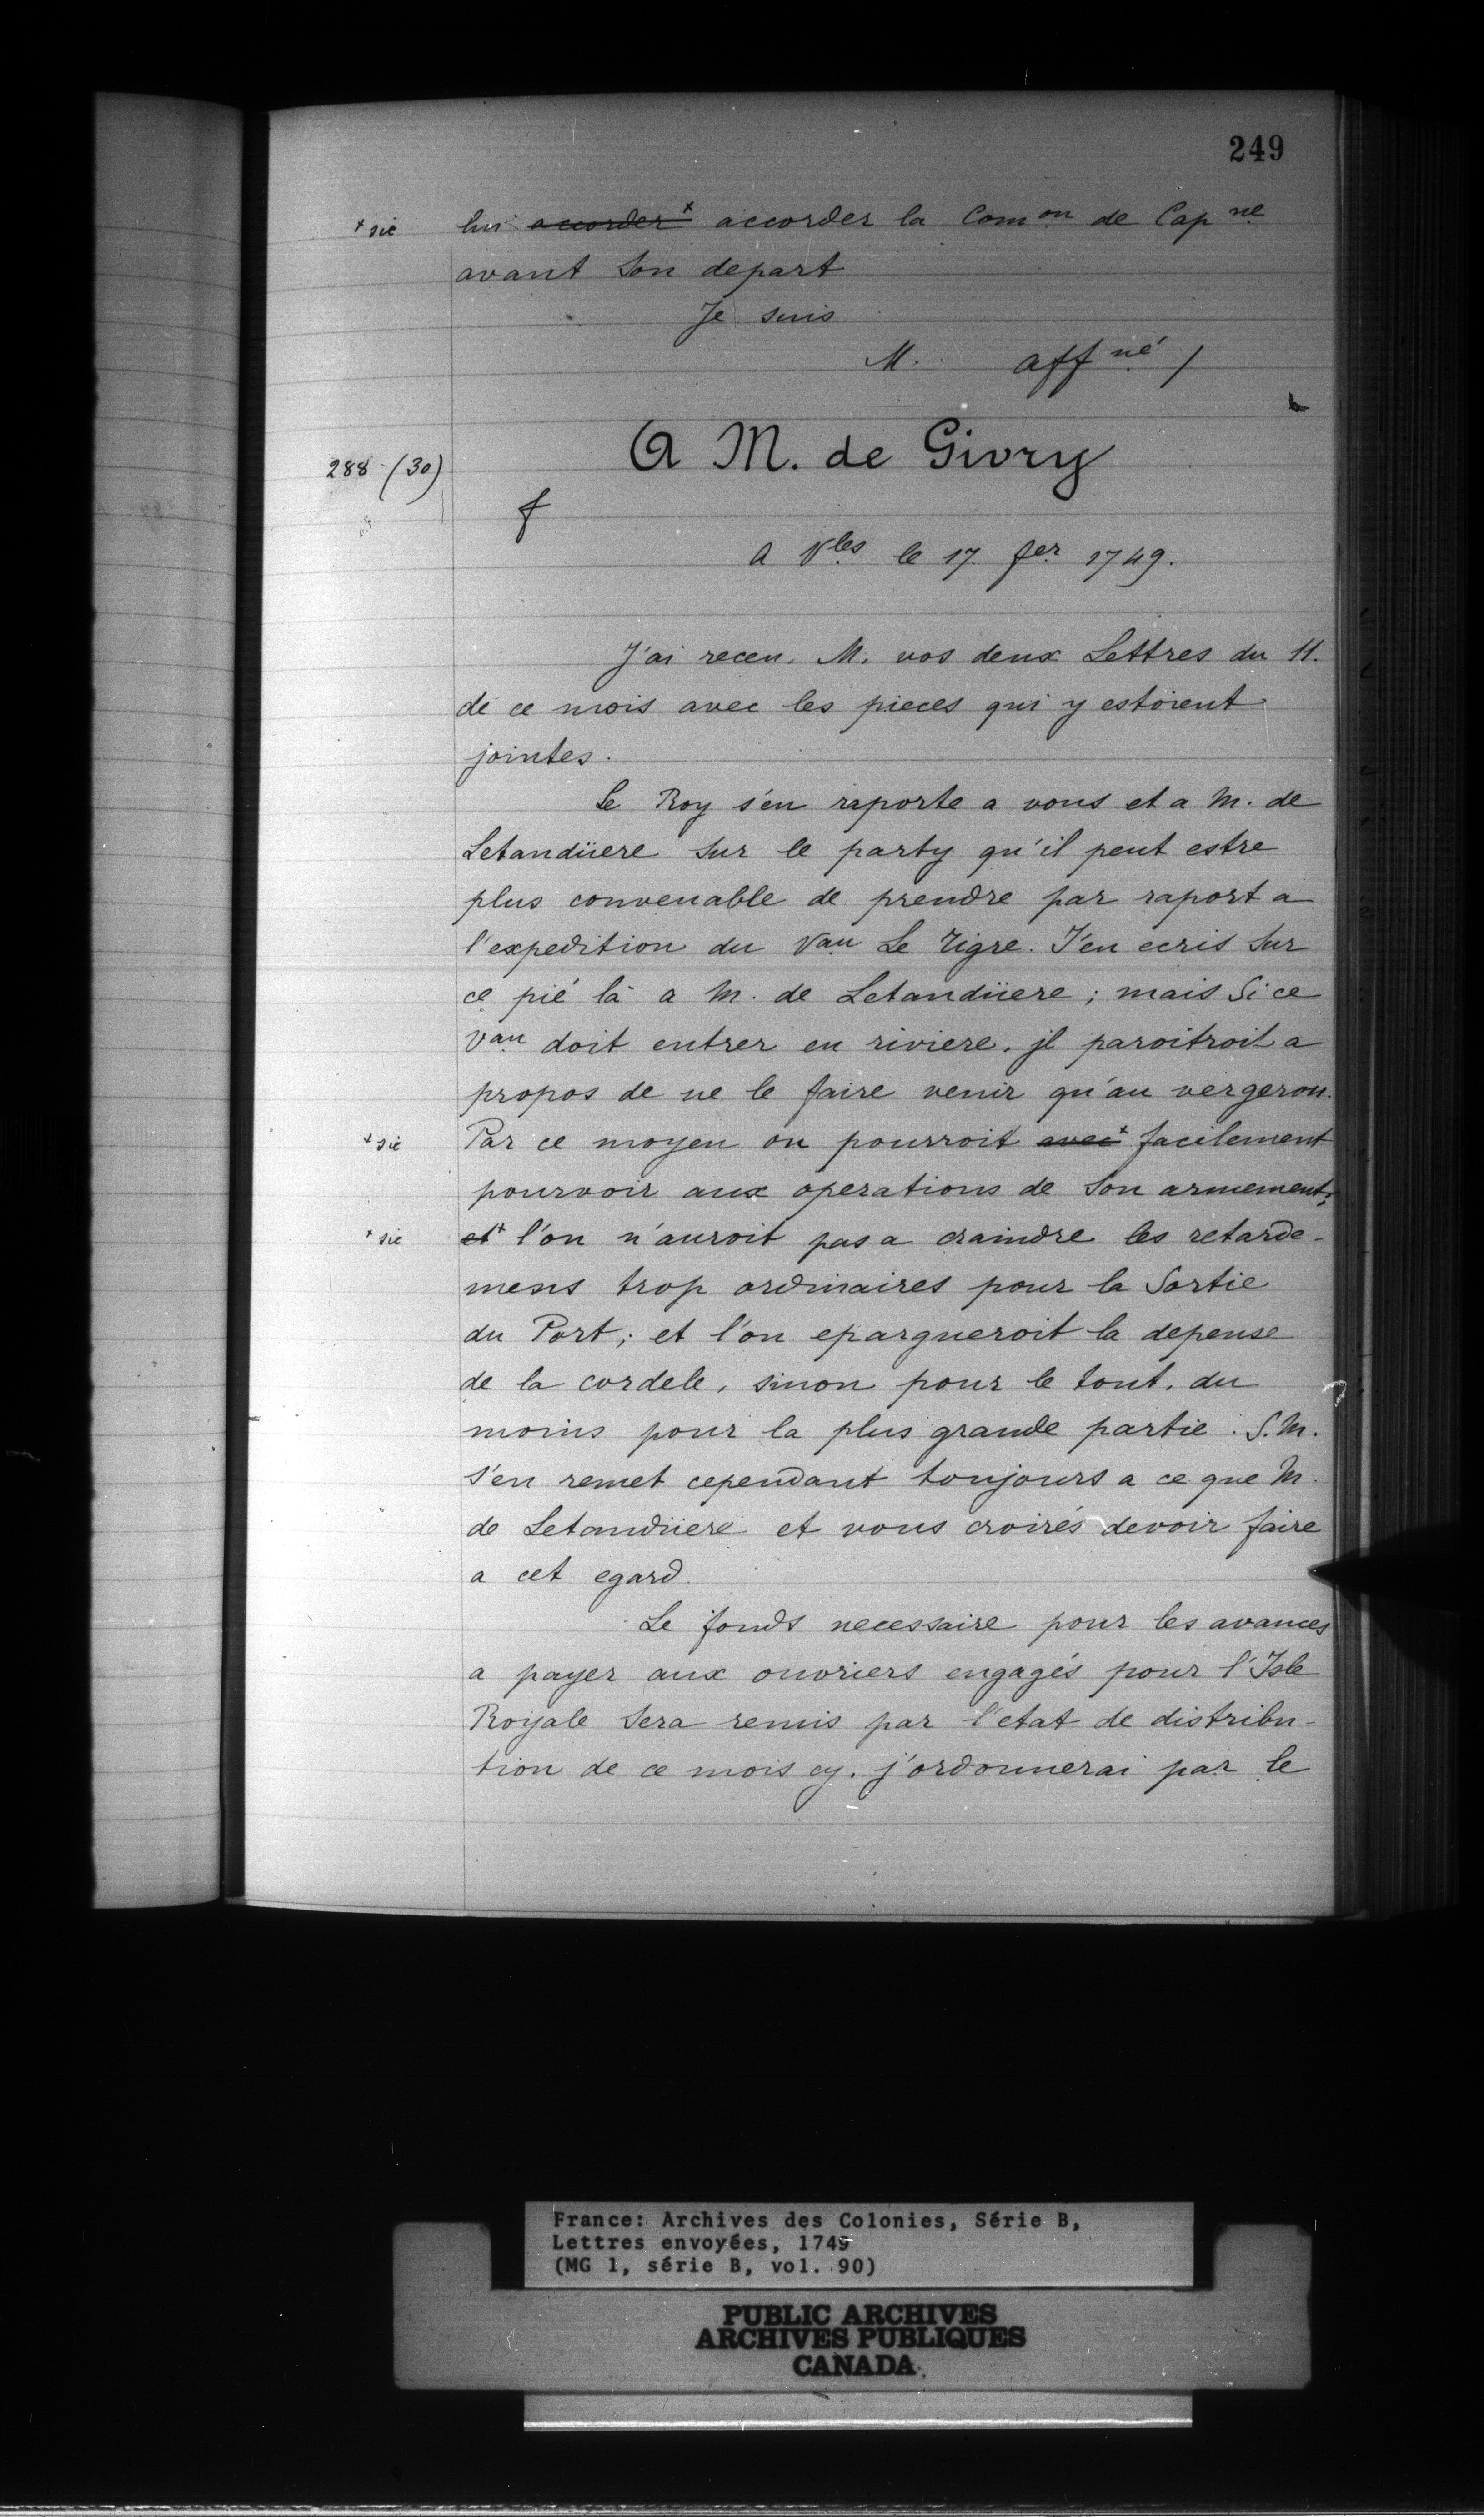 249
+ sic lui accorder + accorder la Com on de Cap ne
avant Son depart
Je suis
M. aff né /
288 - (30) A M. de Givry
f
A Vles le 17. fer 1749.
J'ai receu. M. vos deux Lettres du 11.
de ce mois avec les pieces qui y estoient
jointes.
Le Roy s'en raporte a vous et a M. de
Letandüere Sur le party qu'il peut estre
plus convenable de prendre par raport a
l'expedition du Vau Le Tigre. J'en ecris Sur
ce pié là a M. de Letandüere ; mais Si ce
Vau doit entrer en riviere. jl paroitroit a
propos de ne le faire venir qu'au vergeron.
+ sic Par ce moyen on pourroit avec + facilement
pourvoir aux operations de Son armement;
+ sic et + l'on n'auroit pas a craindre les retarde-
mens trop ordinaires pour la Sortie
du Port ; et l'on epargneroit la depense
de la cordele, sinon pour le tout, du
moins pour la plus grande partie. S. M.
s'en remet cependant toujours a ce que M.
de Letandüere et vous croirés devoir faire
a cet egard.
Le fonds necessaire pour les avances
a payer aux ouvriers engagés pour l'Isle
Royale Sera remis par l'etat de distribu-
tion de ce mois cy. j'ordonnerai par le
France: Archives des Colonies, Série B,
Lettres envoyées, 1749
(MG 1, série B, vol. 90)
PUBLIC ARCHIVES
ARCHIVES PUBLIQUES
CANADA